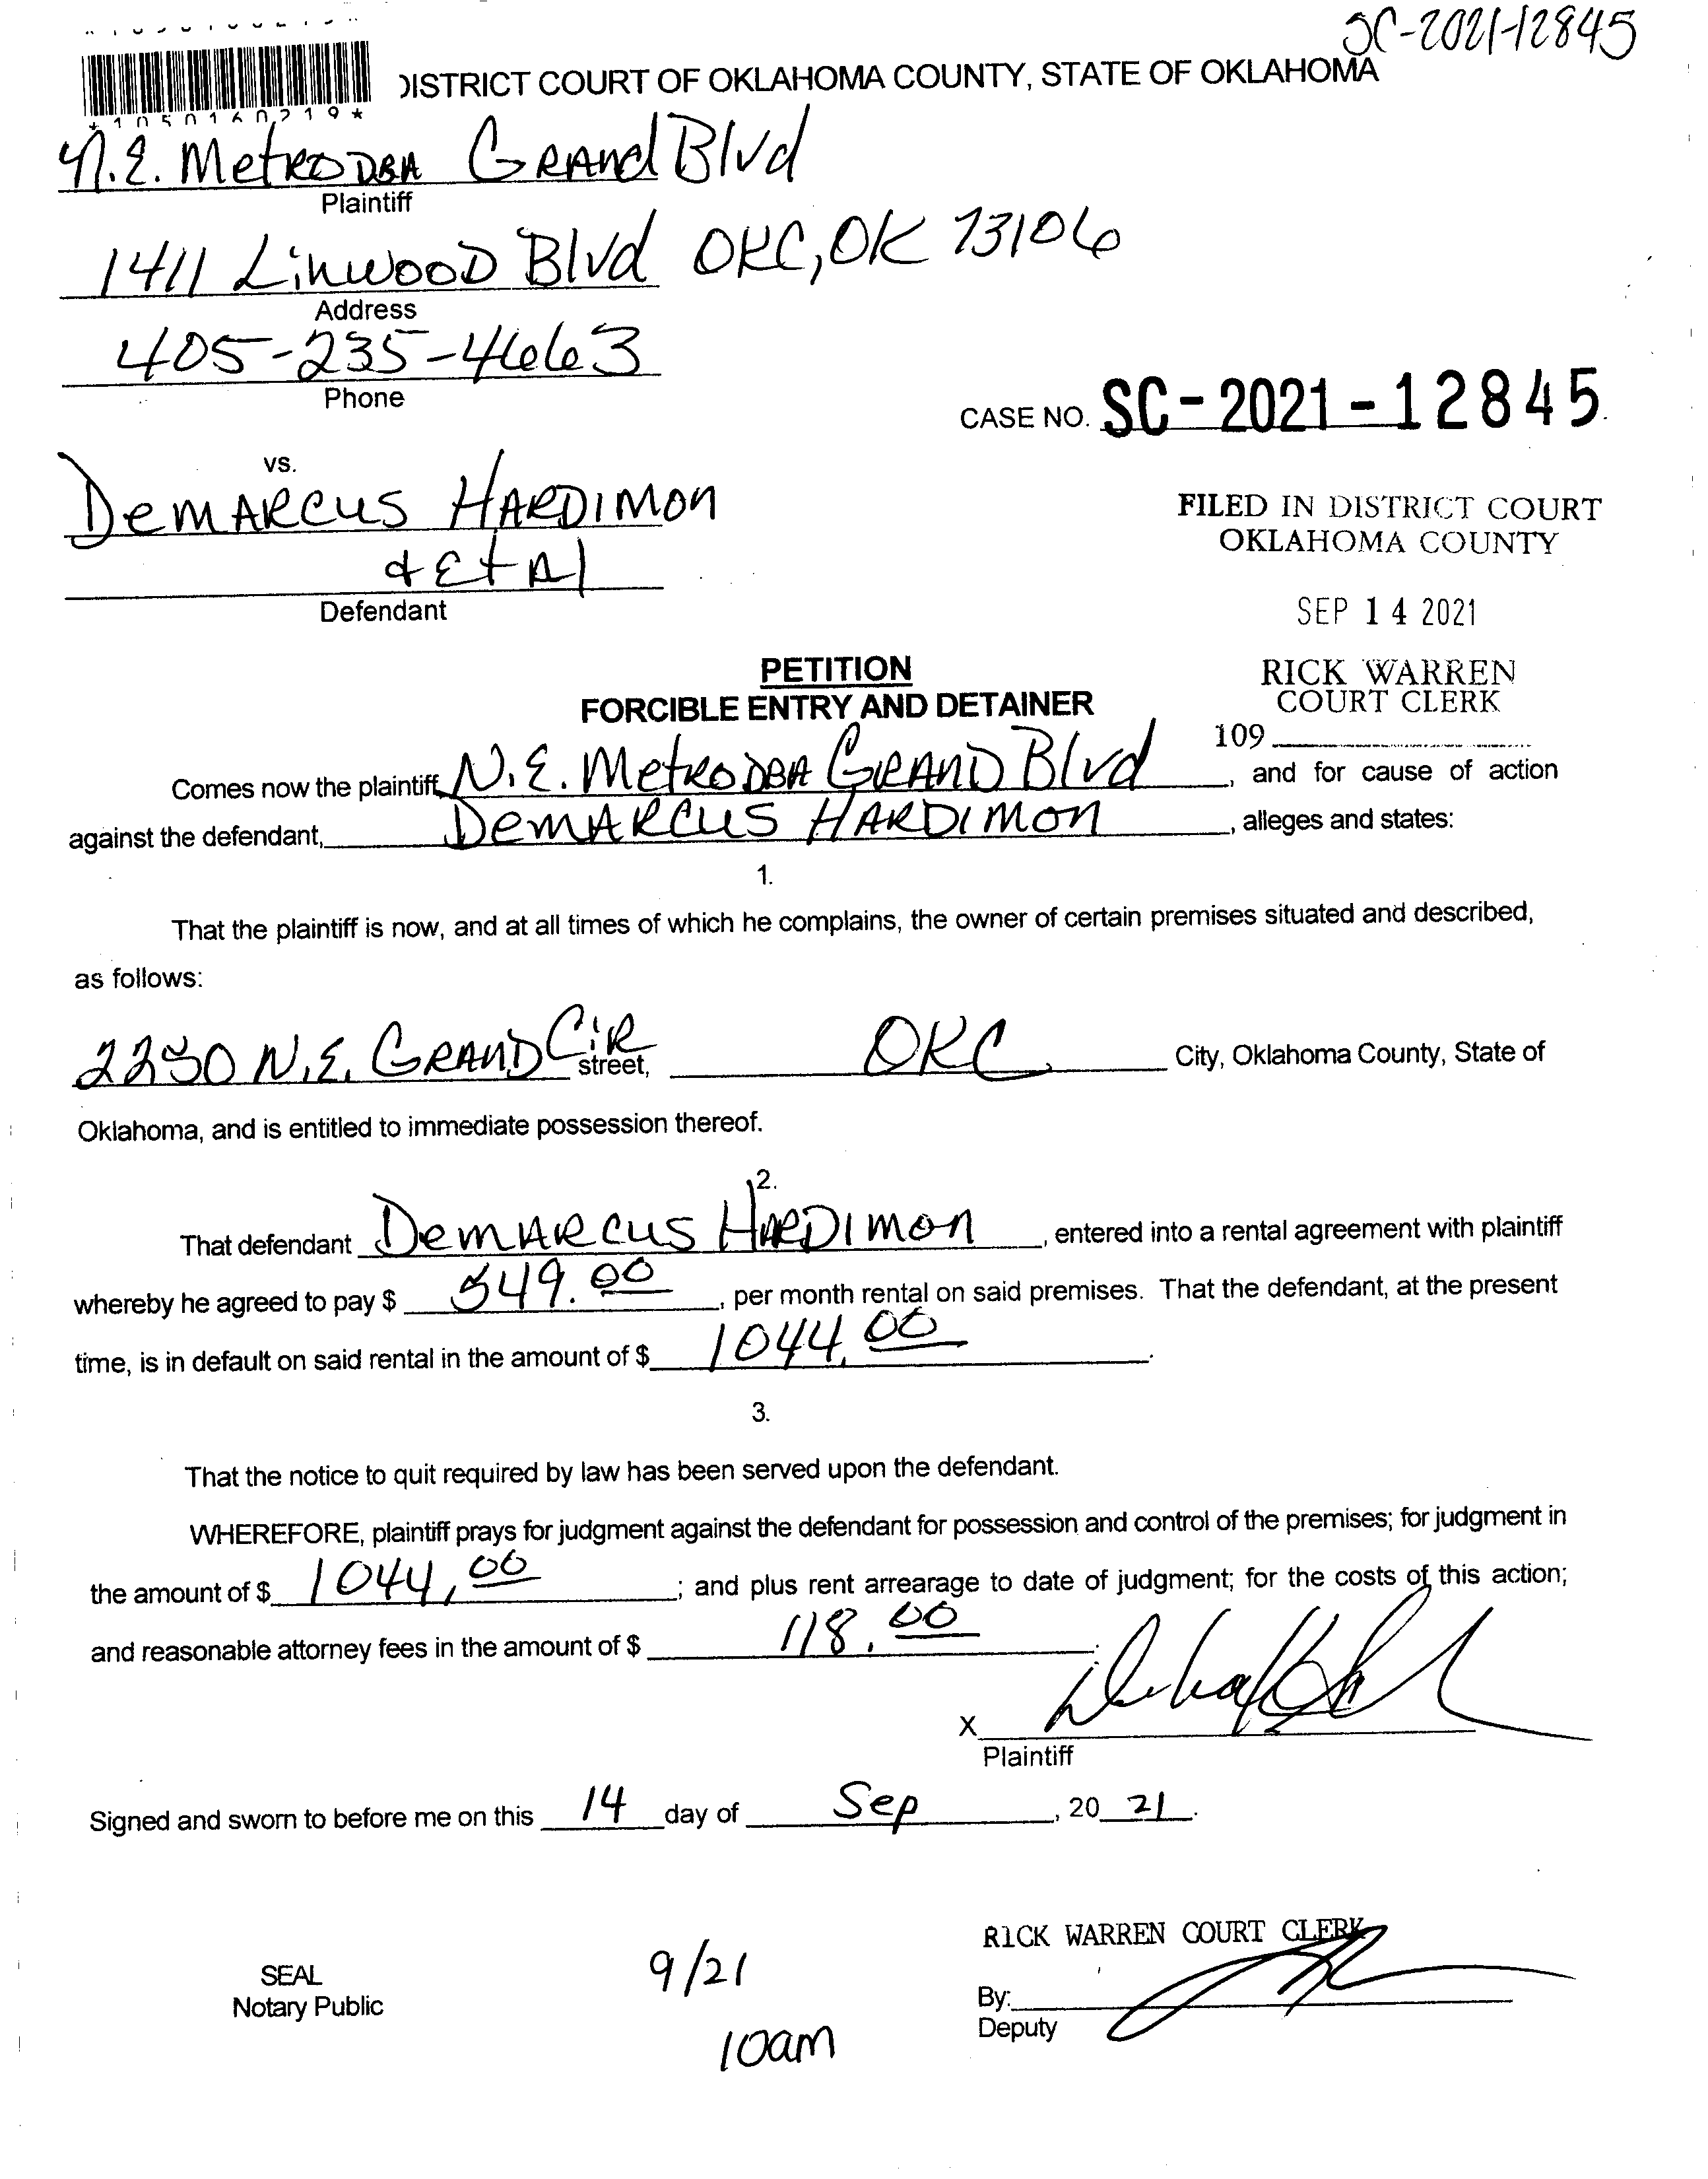 SC-2021-12845
DISTRICT COURT OF OKLAHOMA COUNTY, STATE OF OKLAHOMA
*1050160219*
N.E. Metro DBA Grand Blvd
Plaintiff
1411 Linwood Blvd OKC, OK 73106
Address
405-235-4663
Phone
CASE NO. SC-2021-12845
vs.
Demarcus Hardimon
& Et Al
Defendant
FILED IN DISTRICT COURT
OKLAHOMA COUNTY
SEP 14 2021
RICK WARREN
COURT CLERK
109
PETITION
FORCIBLE ENTRY AND DETAINER
Comes now the plaintiff, N.E. Metro DBA Grand Blvd, and for cause of action
against the defendant, Demarcus Hardimon, alleges and states:
1.
That the plaintiff is now, and at all times of which he complains, the owner of certain premises situated and described,
as follows:
2250 N.E. Grand Cir street, OKC City, Oklahoma County, State of
Oklahoma, and is entitled to immediate possession thereof.
2.
That defendant Demarcus Hardimon, entered into a rental agreement with plaintiff
whereby he agreed to pay $ 549.00, per month rental on said premises. That the defendant, at the present
time, is in default on said rental in the amount of $ 1044.00.
3.
That the notice to quit required by law has been served upon the defendant.
WHEREFORE, plaintiff prays for judgment against the defendant for possession and control of the premises; for judgment in
the amount of $ 1044.00; and plus rent arrearage to date of judgment; for the costs of this action;
and reasonable attorney fees in the amount of $ 118.00.
X
Plaintiff
Signed and sworn to before me on this 14 day of Sep, 20 21.
RICK WARREN COURT CLERK
SEAL
Notary Public
9/21
10am
By:
Deputy